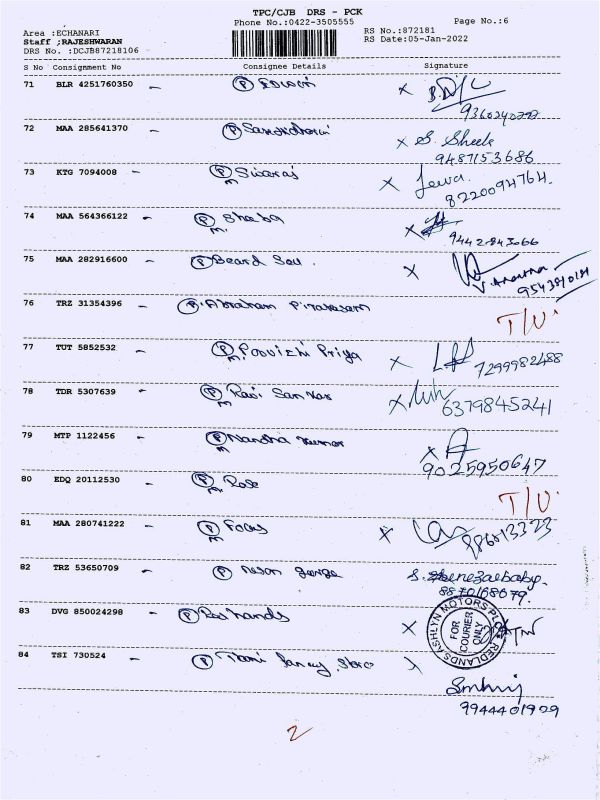 TPC/CJB DRS - PCK
Phone No.:0422-3505555 Page No.:6
Area :ECHANARI RS No.:872181
Staff :RAJESHWARAN RS Date:05-Jan-2022
DRS No. :DCJB87218106
S No Consignment No Consignee Details Signature
71 BLR 4251760350 - P
72 MAA 285641370 P S. Sheela
9487153686
73 KTG 7094008 - P Swaraj Jeeva.
M 8220094764.
74 MAA 564366122 - P Sheba
M. 9442843066
75 MAA 282916600 - P Beard
9543810181
76 TRZ 31354396 - P. Abraham
T/U.
77 TUT 5852532 - P Poovizhi Priya
M. 7299982488
78 TDR 5307639 - P Ravi Sankar
M 6379845241
79 MTP 1122456 - P Nandha Kumar
M 9025950647
80 EDQ 20112530 - P Rose
M. T/U.
81 MAA 280741222 - P Focus
M
82 TRZ 53650709 - P Neson George
8870168679.
83 DVG 850024298 - P Red hands
ASHLYN MOTORS PLOT REDLANDS
FOR COURIER ONLY
84 TSI 730524 - P
9944401929
2